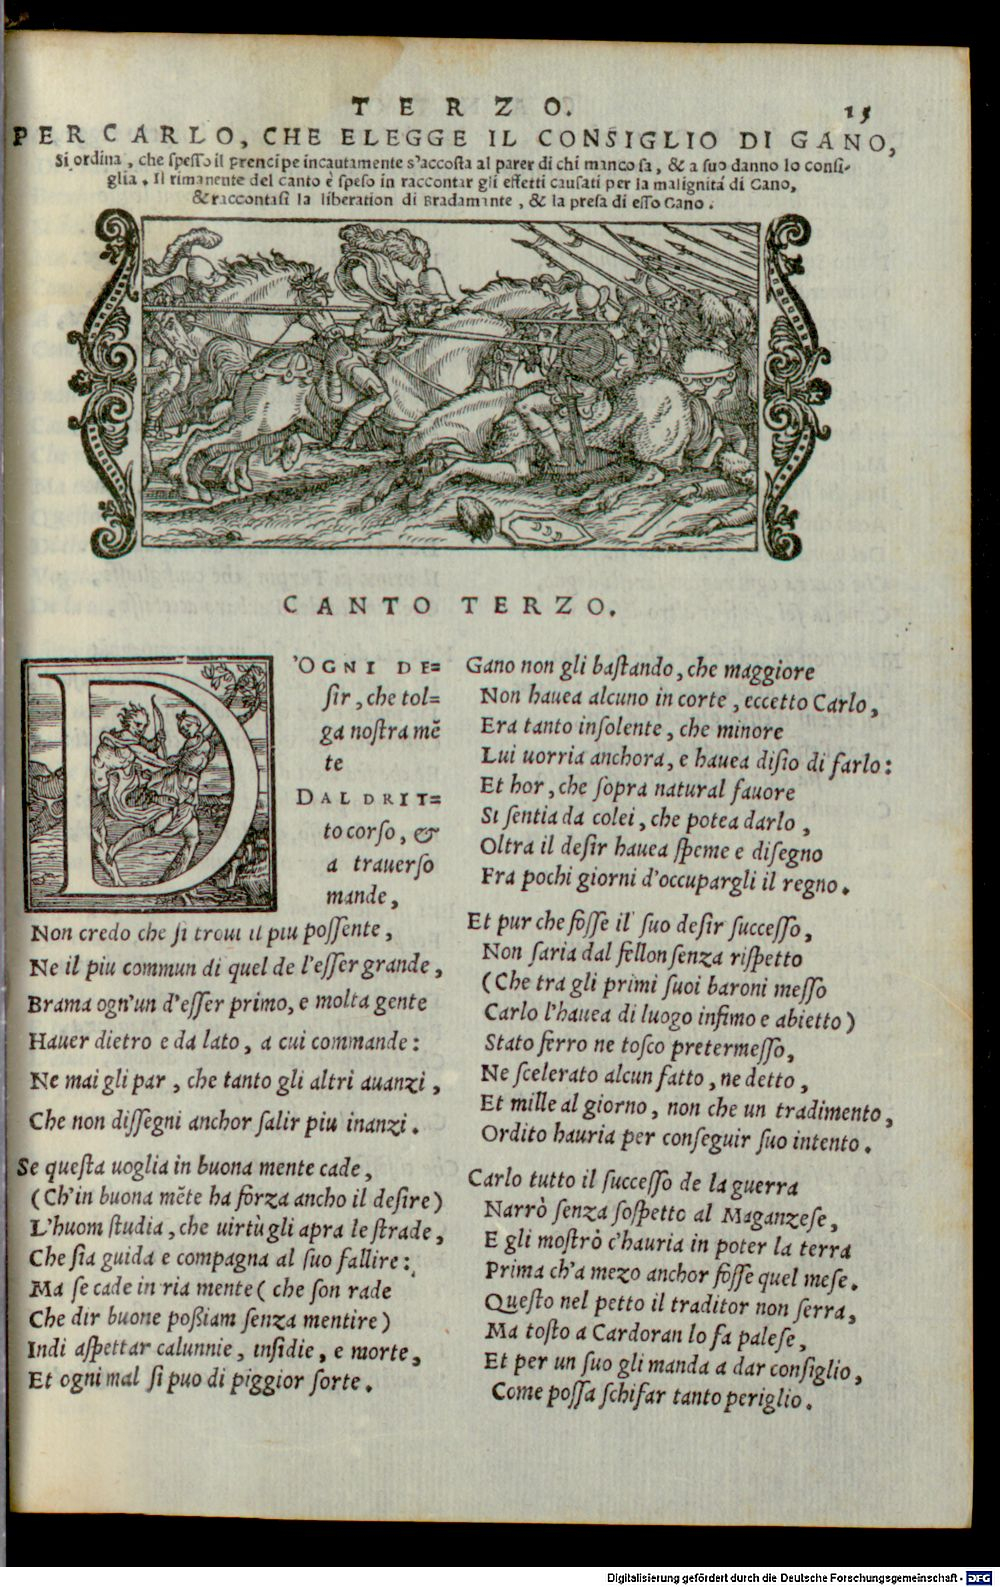 TERZO. 15
PER CARLO, CHE ELEGGE IL CONSIGLIO DI GANO,
Si ordina, che speſſo il prencipe incautamente s'accoſta al parer di chi manco sa, & a suo danno lo conſi-
glia. Il rimanente del canto è speso in raccontar gli effetti cauſati per la malignitá di Gano,
& raccontaſi la liberation di Bradamante, & la preſa di eſſo Gano.
CANTO TERZO.
D'OGNI DE=
ſir, che tol=
ga noſtra mẽ
te
DAL DRIT=
to corſo, &
a trauerſo
mande,
Non credo che ſi troui il piu poſſente,
Ne il piu commun di quel de l'eſſer grande,
Brama ogn'un d'eſſer primo, e molta gente
Hauer dietro e da lato, a cui commande:
Ne mai gli par, che tanto gli altri auanzi,
Che non diſſegni anchor ſalir piu inanzi.
Se queſta uoglia in buona mente cade,
(Ch'in buona mẽte ha forza ancho il deſire)
L'huom ſtudia, che uirtù gli apra le ſtrade,
Che ſia guida e compagna al ſuo fallire:
Ma ſe cade in ria mente (che ſon rade
Che dir buone poßiam ſenza mentire)
Indi aſpettar calunnie, inſidie, e morte,
Et ogni mal ſi puo di piggior ſorte.
Gano non gli baſtando, che maggiore
Non hauea alcuno in corte, eccetto Carlo,
Era tanto inſolente, che minore
Lui uorria anchora, e hauea diſio di farlo:
Et hor, che ſopra natural fauore
Si ſentia da colei, che potea darlo,
Oltra il deſir hauea ſpeme e diſegno
Fra pochi giorni d'occupargli il regno.
Et pur che foſſe il ſuo deſir ſucceſſo,
Non ſaria dal fellon ſenza riſpetto
(Che tra gli primi ſuoi baroni meſſo
Carlo l'hauea di luogo infimo e abietto)
Stato ferro ne toſco pretermeſſo,
Ne ſcelerato alcun fatto, ne detto,
Et mille al giorno, non che un tradimento,
Ordito hauria per conſeguir ſuo intento.
Carlo tutto il ſucceſſo de la guerra
Narrò ſenza ſoſpetto al Maganzeſe,
E gli moſtrò c'hauria in poter la terra
Prima ch'a mezo anchor foſſe quel meſe.
Queſto nel petto il traditor non ſerra,
Ma toſto a Cardoran lo fa paleſe,
Et per un ſuo gli manda a dar conſiglio,
Come poſſa ſchifar tanto periglio.
Digitalisierung gefördert durch die Deutsche Forschungsgemeinschaft - DFG